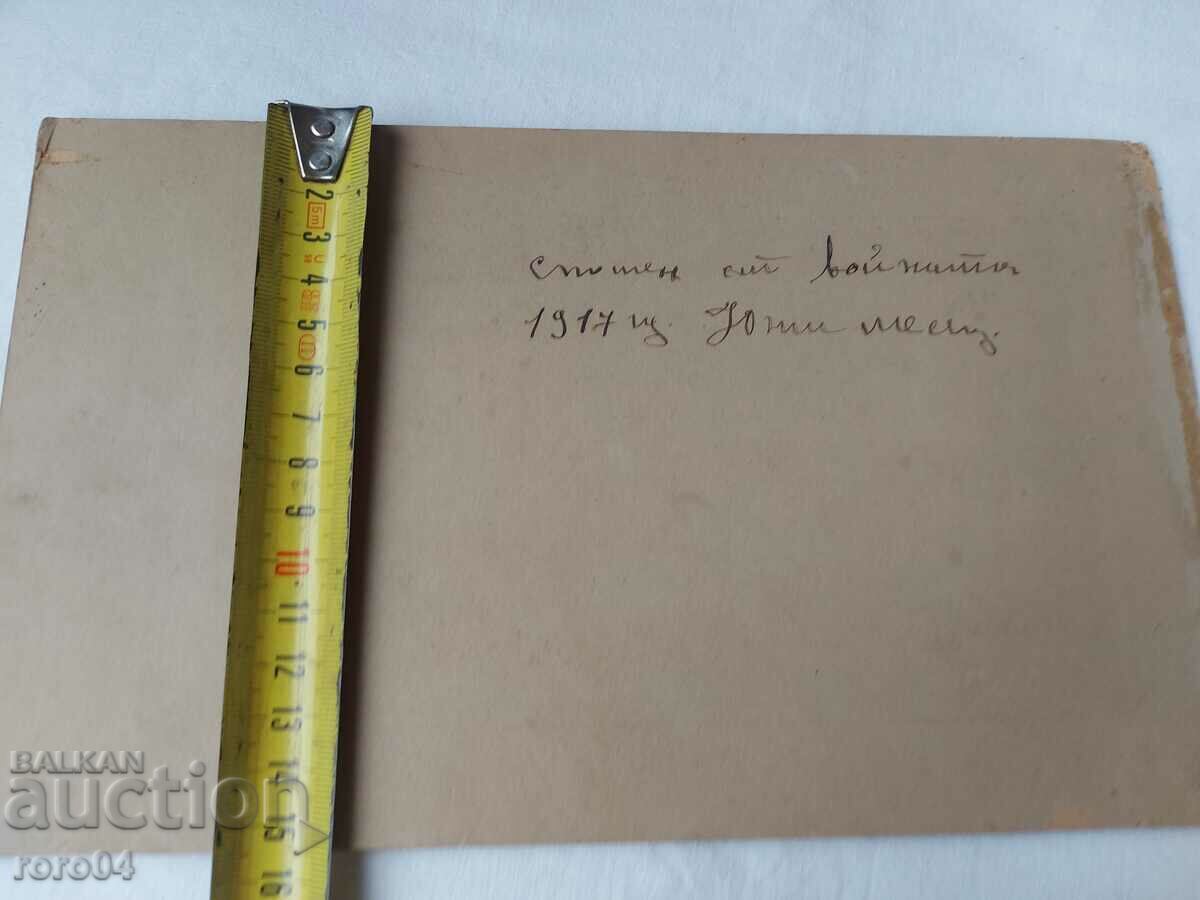 2
5m
3
4
5
6
7
8
9
10
11
12
13
14
15
16
спомен от войната
1917 г. Юни месец.
BALKAN
auction
roro04